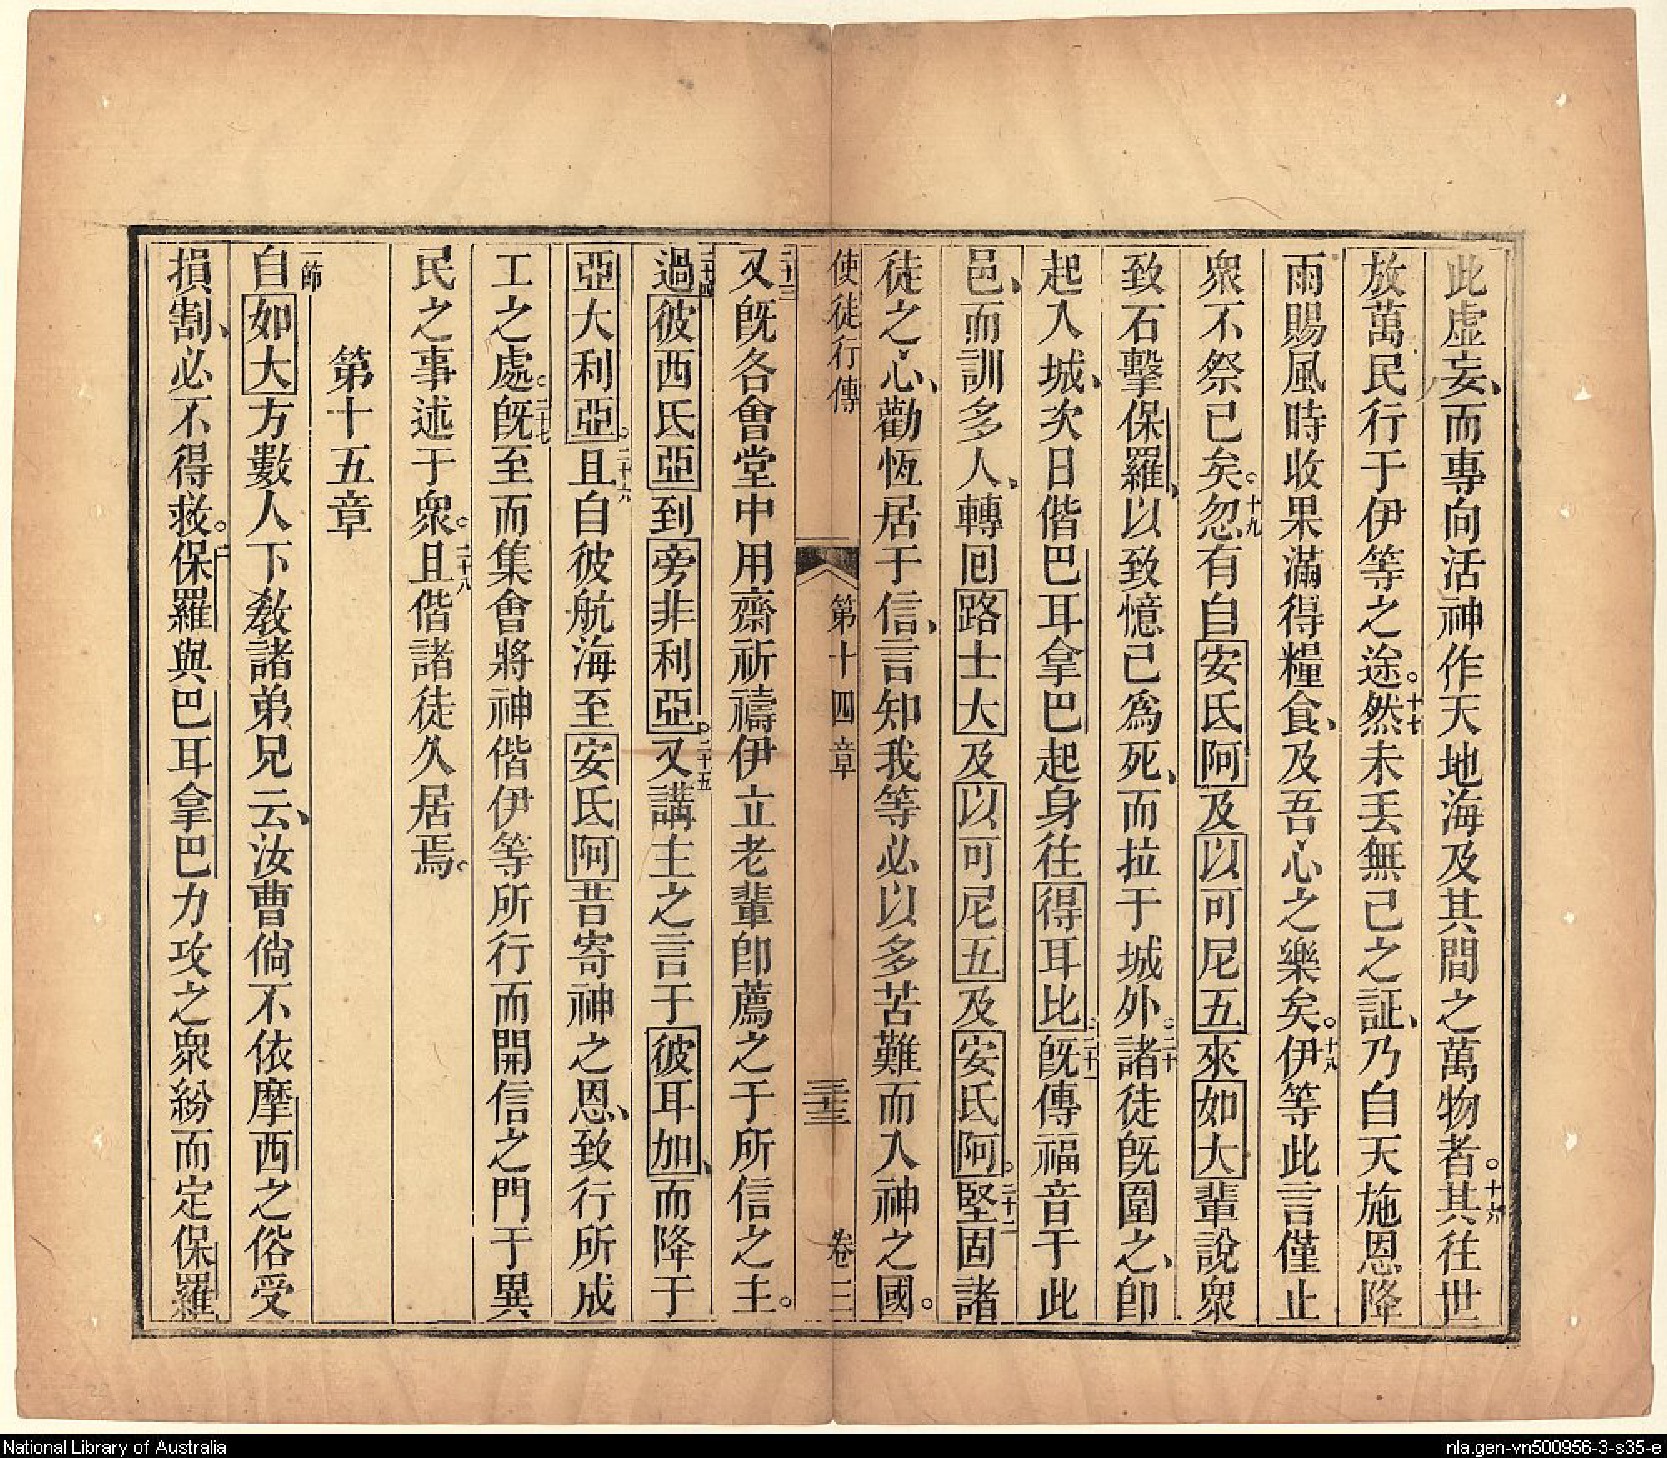 此虛妄、而專向活神作天地海及其間之萬物者。十六其往世
放萬民行于伊等之途。十七然未丟無己之証、乃自天施恩降
雨賜風時收果滿得糧食、及吾心之樂矣。十八伊等此言僅止
眾不祭已矣。十九忽有自安氐阿及以可尼五來如大輩說眾
致石擊保羅、以致憶已為死、而拉于城外。二十諸徒既圍之、即
起入城、次日偕巴耳拿巴起身往得耳比。二十一既傳福音于此
邑、而訓多人、轉回路士大及以可尼五及安氐阿。二十二堅固諸
徒之心、勸恆居于信、言知我等必以多苦難而入神之國。
使徒行傳 第十四章 三十三 卷三
二十三又既各會堂中用齋祈禱伊立老輩即薦之于所信之主。
二十四過彼西氐亞到旁非利亞。二十五又講主之言于彼耳加、而降于
亞大利亞。二十六且自彼航海至安氐阿昔寄神之恩、致行所成
工之處。二十七既至而集會將神偕伊等所行而開信之門于異
民之事述于眾。二十八且偕諸徒久居焉。
第十五章
一節自如大方數人下教諸弟兄云、汝曹倘不依摩西之俗受
損割、必不得救。二保羅與巴耳拿巴力攻之眾紛而定保羅
National Library of Australia
nla.gen-vn500956-3-s35-e